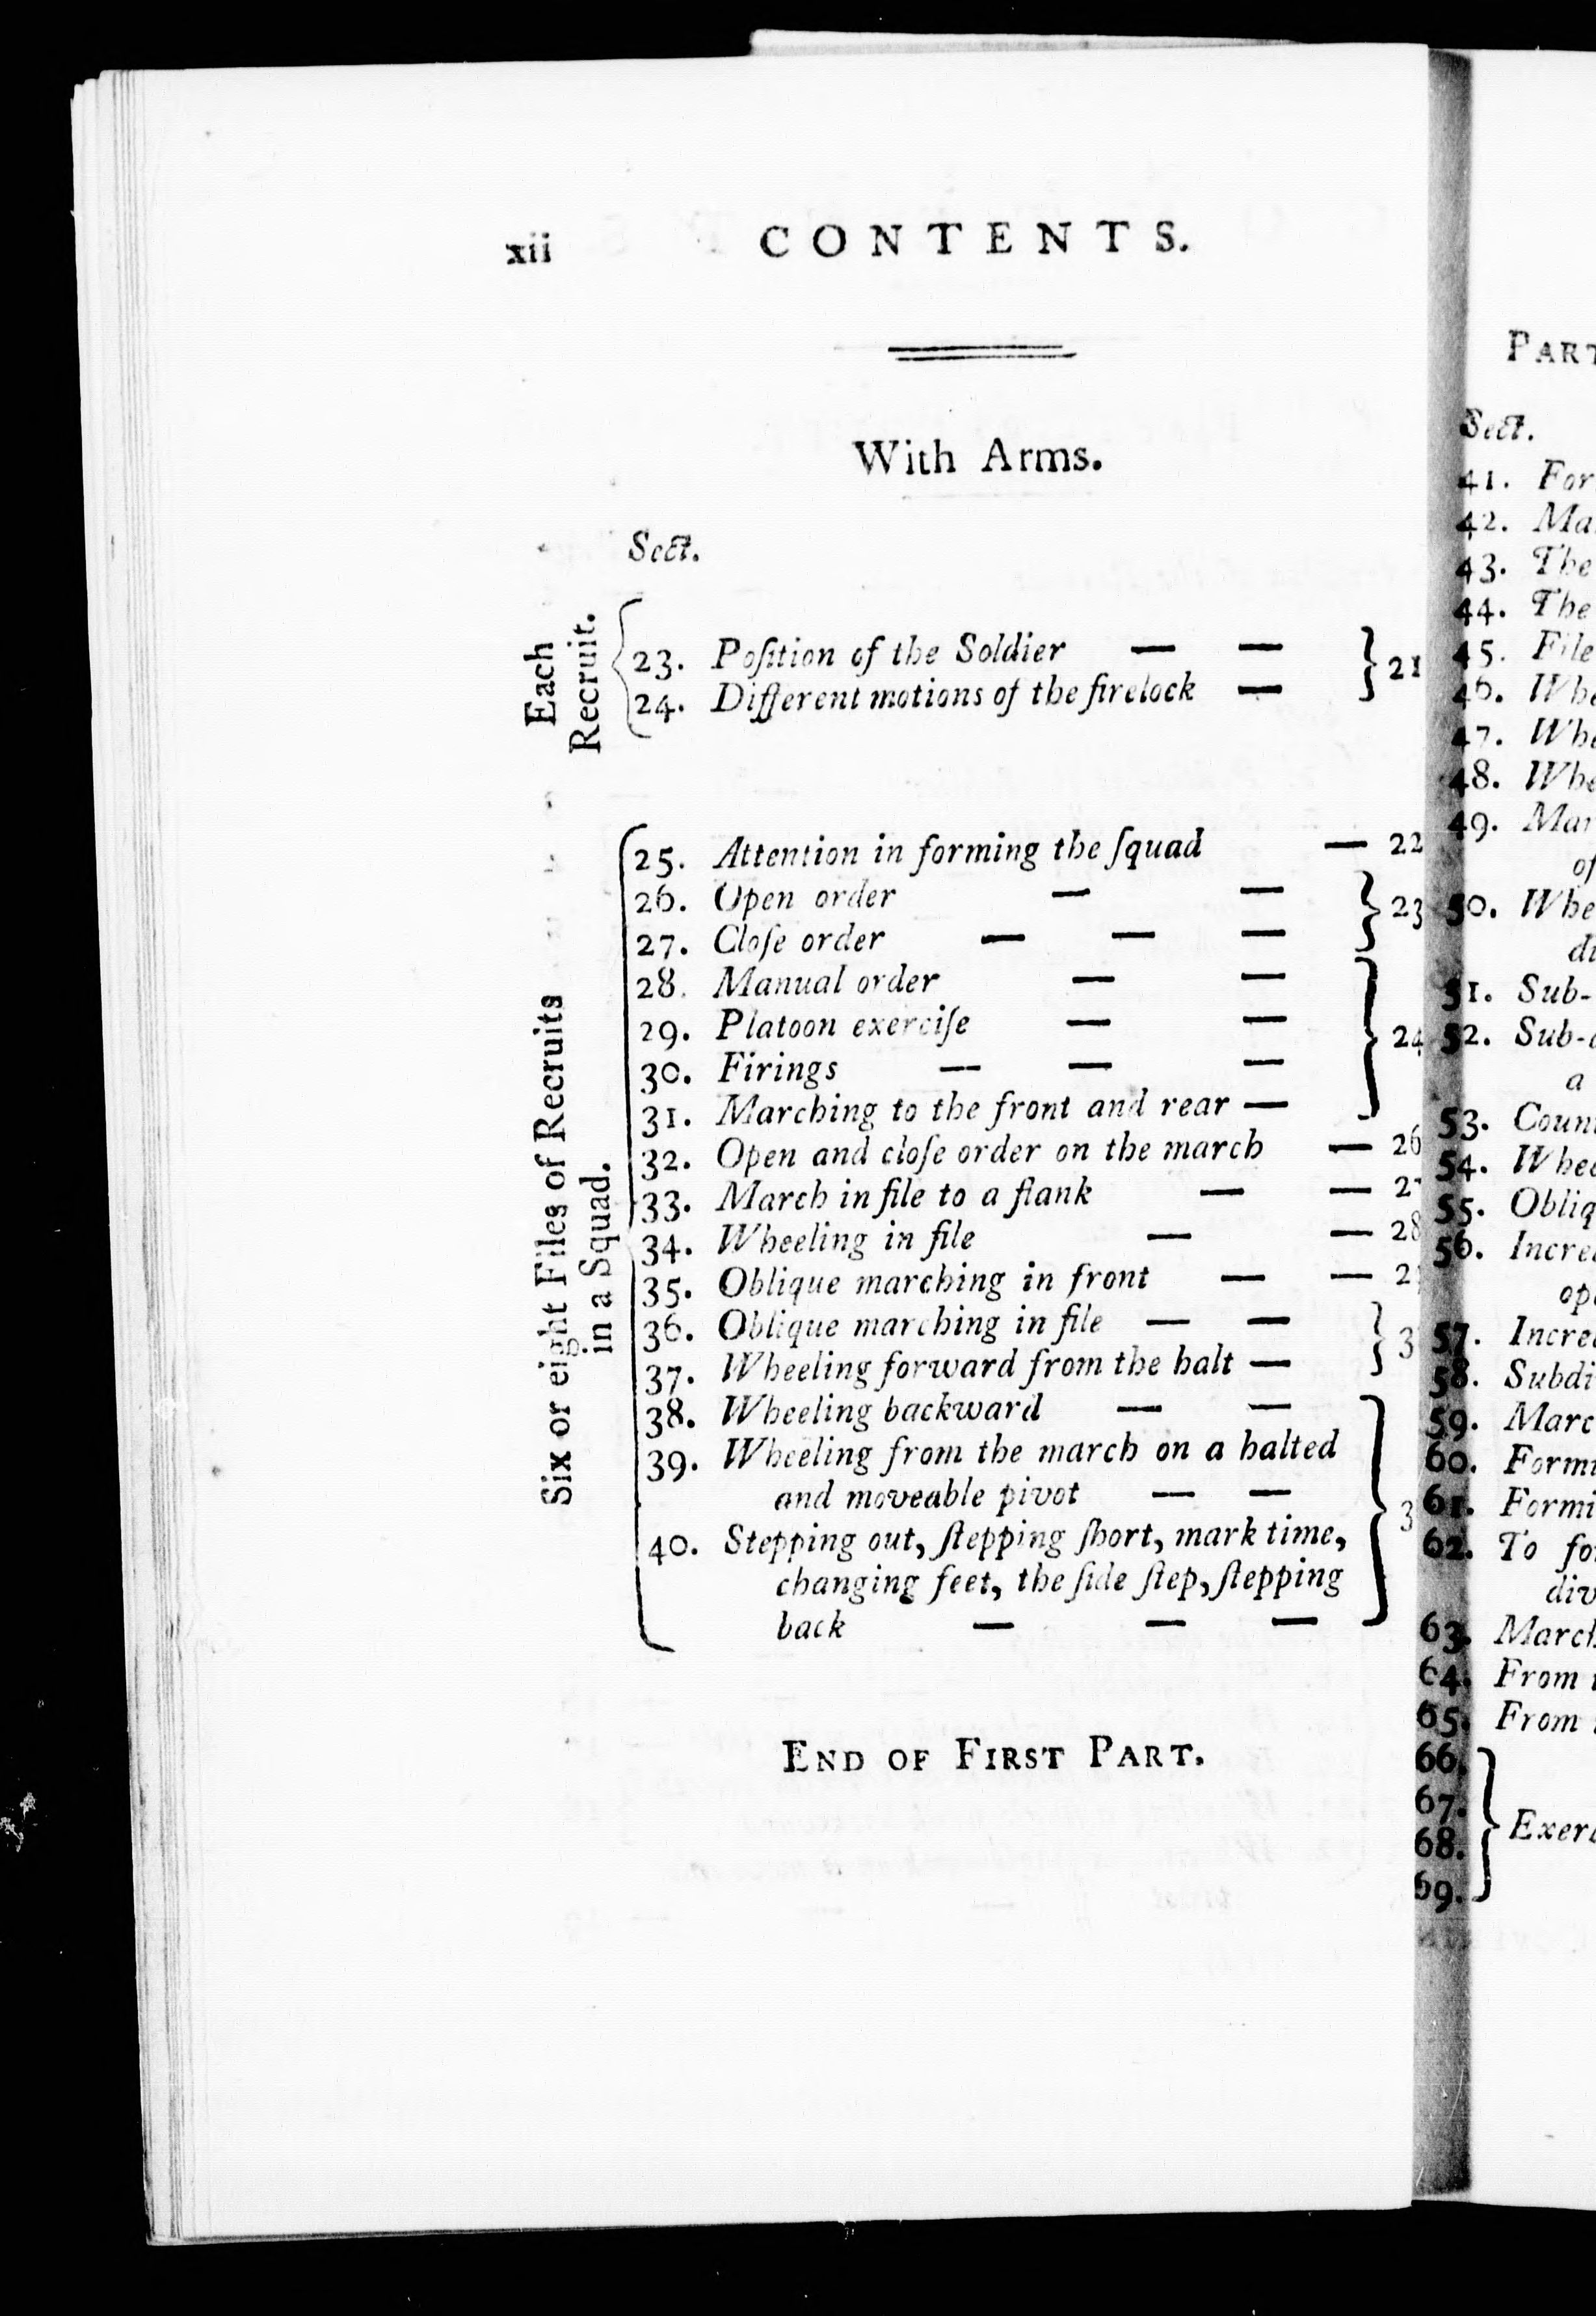 xii
CONTENTS.
With Arms.
Sect.
Each
Recruit.
23. Poſition of the Soldier — —
24. Different motions of the firelock —
} 21
Six or eight Files of Recruits
in a Squad.
25. Attention in forming the ſquad — 22
26. Open order — —
27. Cloſe order — — —
} 23
28. Manual order — —
29. Platoon exerciſe — —
30. Firings — — —
31. Marching to the front and rear —
} 24
32. Open and cloſe order on the march — 26
33. March in file to a flank — —
34. Wheeling in file — — 28
35. Oblique marching in front — —
36. Oblique marching in file — —
37. Wheeling forward from the halt —
38. Wheeling backward — —
39. Wheeling from the march on a halted
and moveable pivot — —
40. Stepping out, ſtepping ſhort, mark time,
changing feet, the ſide ſtep, ſtepping
back — — —
END OF FIRST PART.
Sect.
41.
42.
43. The
44. The
45. File
46.
47.
48.
49.
of
50.
51. Sub-
52. Sub-
a
53.
54.
55.
56.
57.
58.
59.
60.
61.
62. To
63.
64. From
65. From
66.
67.
68.
69.